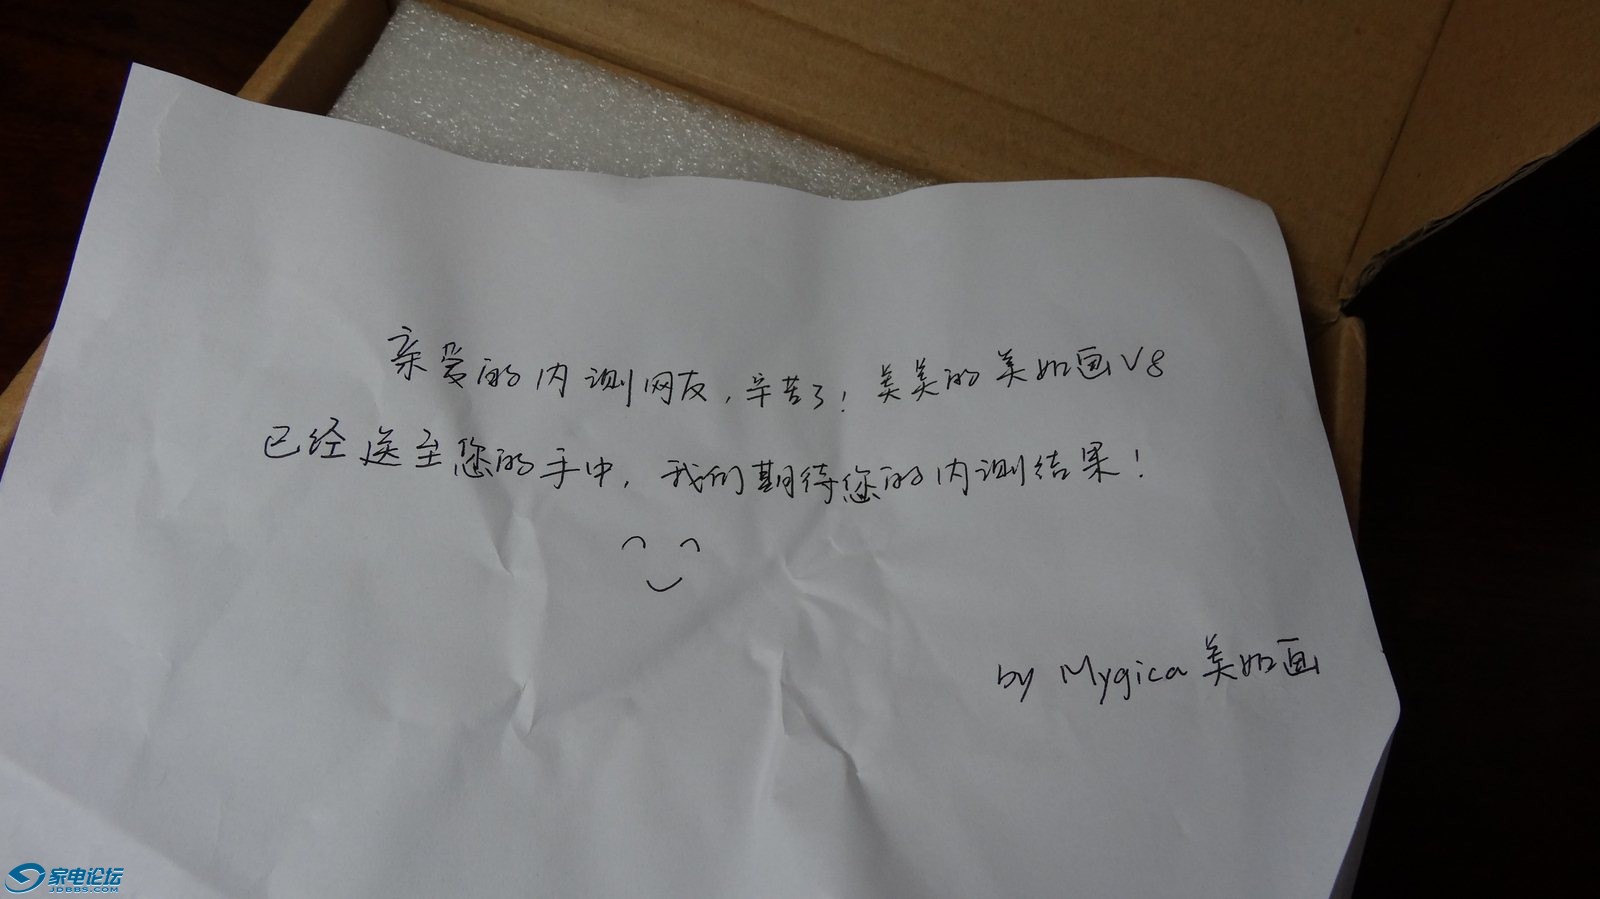 亲爱的内测网友，辛苦了！美美的美如画V8
已经送至您的手中，我们期待您的内测结果！
by Mygica美如画
家电论坛
JDBBS.COM